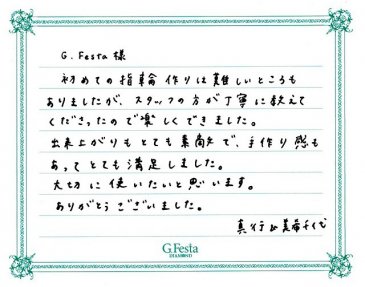 G.Festa 様
初めての指輪作りは難しいところも
ありましたが、スタッフの方が丁寧に教えて
くださったので楽しくできました。
出来上がりもとても素敵で、手作り感も
あってとても満足しました。
大切に使いたいと思います。
ありがとうございました。
真行
G.Festa
DIAMOND